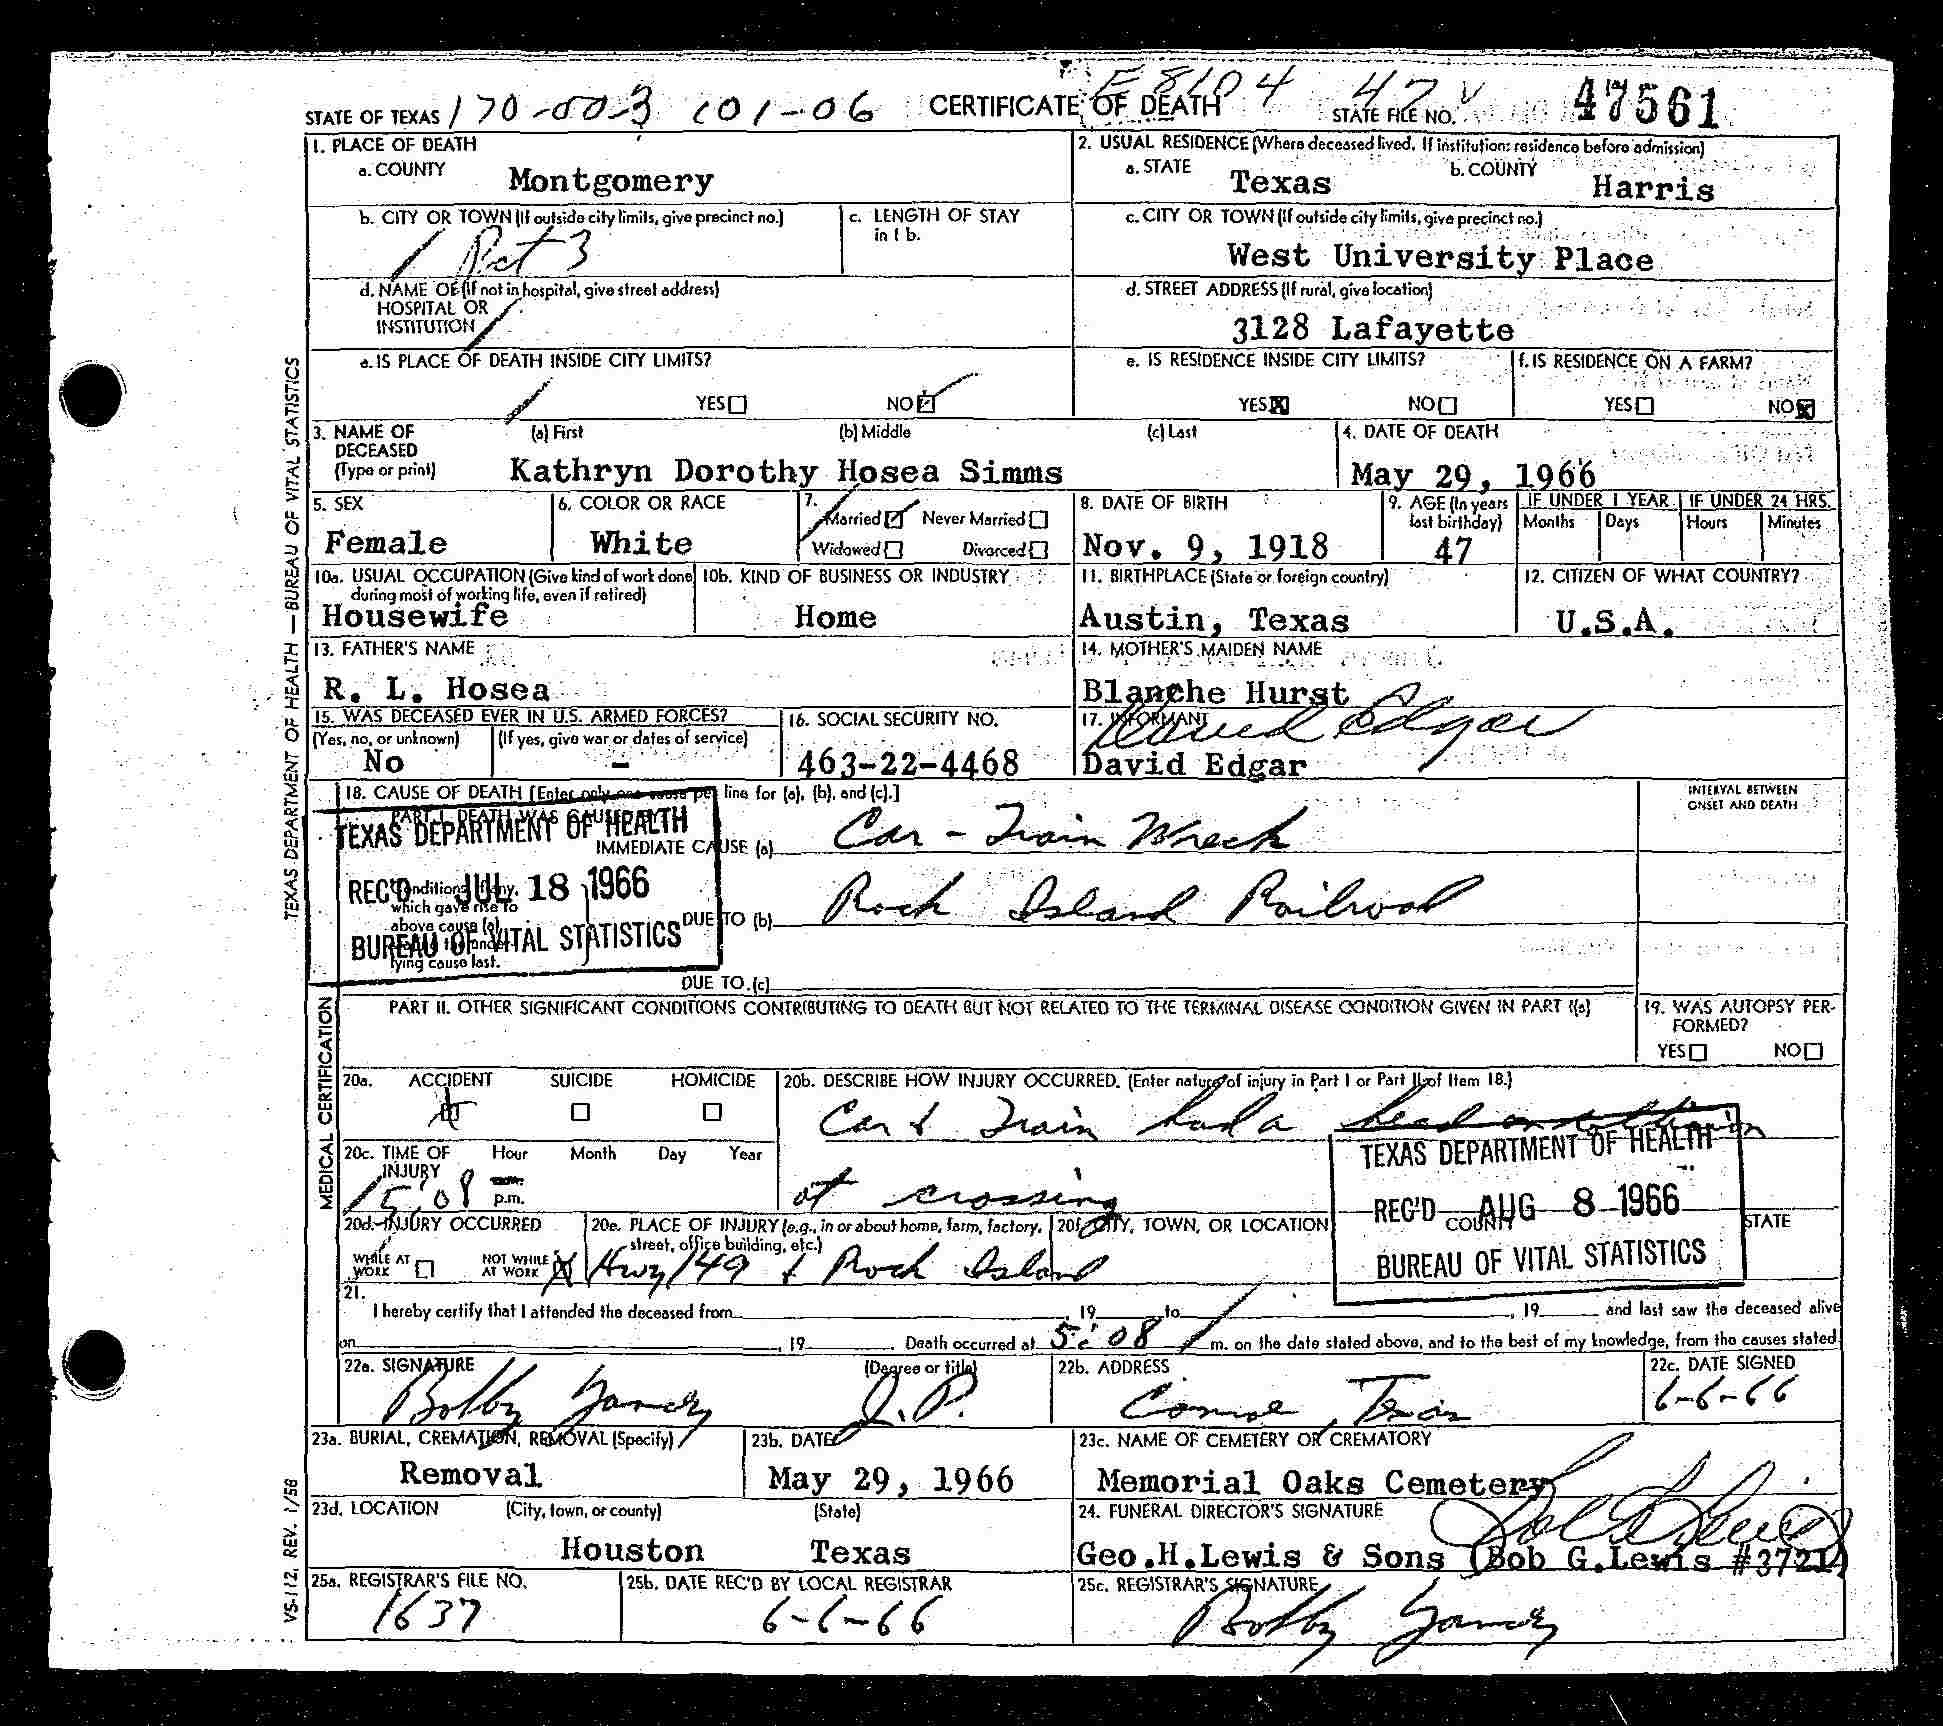 STATE OF TEXAS 170-003 101-06 CERTIFICATE OF DEATH E8104 47 STATE FILE NO. 47561
1. PLACE OF DEATH
a. COUNTY Montgomery
2. USUAL RESIDENCE (Where deceased lived. If institution: residence before admission)
a. STATE Texas b. COUNTY Harris
b. CITY OR TOWN (If outside city limits, give precinct no.) Pct 3
c. LENGTH OF STAY in 1 b.
c. CITY OR TOWN (If outside city limits, give precinct no.)
West University Place
d. NAME OF (If not in hospital, give street address)
HOSPITAL OR
INSTITUTION
d. STREET ADDRESS (If rural, give location)
3128 Lafayette
e. IS PLACE OF DEATH INSIDE CITY LIMITS?
YES NO
e. IS RESIDENCE INSIDE CITY LIMITS?
YES NO
f. IS RESIDENCE ON A FARM?
YES NO
3. NAME OF DECEASED (Type or print) (a) First (b) Middle (c) Last
Kathryn Dorothy Hosea Simms
4. DATE OF DEATH
May 29, 1966
5. SEX
Female
6. COLOR OR RACE
White
7. Married Never Married
Widowed Divorced
8. DATE OF BIRTH
Nov. 9, 1918
9. AGE (In years last birthday)
47
IF UNDER 1 YEAR IF UNDER 24 HRS.
Months Days Hours Minutes
10a. USUAL OCCUPATION (Give kind of work done during most of working life, even if retired)
Housewife
10b. KIND OF BUSINESS OR INDUSTRY
Home
11. BIRTHPLACE (State or foreign country)
Austin, Texas
12. CITIZEN OF WHAT COUNTRY?
U.S.A.
13. FATHER'S NAME
R. L. Hosea
14. MOTHER'S MAIDEN NAME
Blanche Hurst
15. WAS DECEASED EVER IN U.S. ARMED FORCES?
(Yes, no, or unknown) (If yes, give war or dates of service)
No -
16. SOCIAL SECURITY NO.
463-22-4468
17. INFORMANT
David Edgar
David Edgar
18. CAUSE OF DEATH [Enter only one cause per line for (a), (b), and (c).]
INTERVAL BETWEEN ONSET AND DEATH
PART I. DEATH WAS CAUSED BY:
IMMEDIATE CAUSE (a) Car - Train Wreck
Conditions, if any, which gave rise to above cause (a), lying cause last.
DUE TO (b) Rock Island Railroad
DUE TO (c)
TEXAS DEPARTMENT OF HEALTH
REC'D JUL 18 1966
BUREAU OF VITAL STATISTICS
PART II. OTHER SIGNIFICANT CONDITIONS CONTRIBUTING TO DEATH BUT NOT RELATED TO THE TERMINAL DISEASE CONDITION GIVEN IN PART I(a)
19. WAS AUTOPSY PERFORMED?
YES NO
20a. ACCIDENT SUICIDE HOMICIDE
20b. DESCRIBE HOW INJURY OCCURRED. (Enter nature of injury in Part I or Part II of Item 18.)
Car & Train had a head on collision
at crossing
20c. TIME OF INJURY Hour Month Day Year
5:08 p.m.
20d. INJURY OCCURRED
WHILE AT WORK NOT WHILE AT WORK
20e. PLACE OF INJURY (e.g., in or about home, farm, factory, street, office building, etc.)
Hwy 149 & Rock Island
20f. CITY, TOWN, OR LOCATION COUNTY STATE
TEXAS DEPARTMENT OF HEALTH
REC'D AUG 8 1966
BUREAU OF VITAL STATISTICS
21.
I hereby certify that I attended the deceased from , 19 to , 19 and last saw the deceased alive
on , 19 . Death occurred at 5:08 m. on the date stated above, and to the best of my knowledge, from the causes stated.
22a. SIGNATURE (Degree or title)
Bobby Yancy J.P.
22b. ADDRESS
Conroe, Texas
22c. DATE SIGNED
6-6-66
23a. BURIAL, CREMATION, REMOVAL (Specify)
Removal
23b. DATE
May 29, 1966
23c. NAME OF CEMETERY OR CREMATORY
Memorial Oaks Cemetery
23d. LOCATION (City, town, or county) (State)
Houston Texas
24. FUNERAL DIRECTOR'S SIGNATURE
Bob G. Lewis
Geo.H.Lewis & Sons (Bob G.Lewis #3721)
25a. REGISTRAR'S FILE NO.
1637
25b. DATE REC'D BY LOCAL REGISTRAR
6-6-66
25c. REGISTRAR'S SIGNATURE
Bobby Yancy
TEXAS DEPARTMENT OF HEALTH — BUREAU OF VITAL STATISTICS
MEDICAL CERTIFICATION
VS-112, REV. 1/58